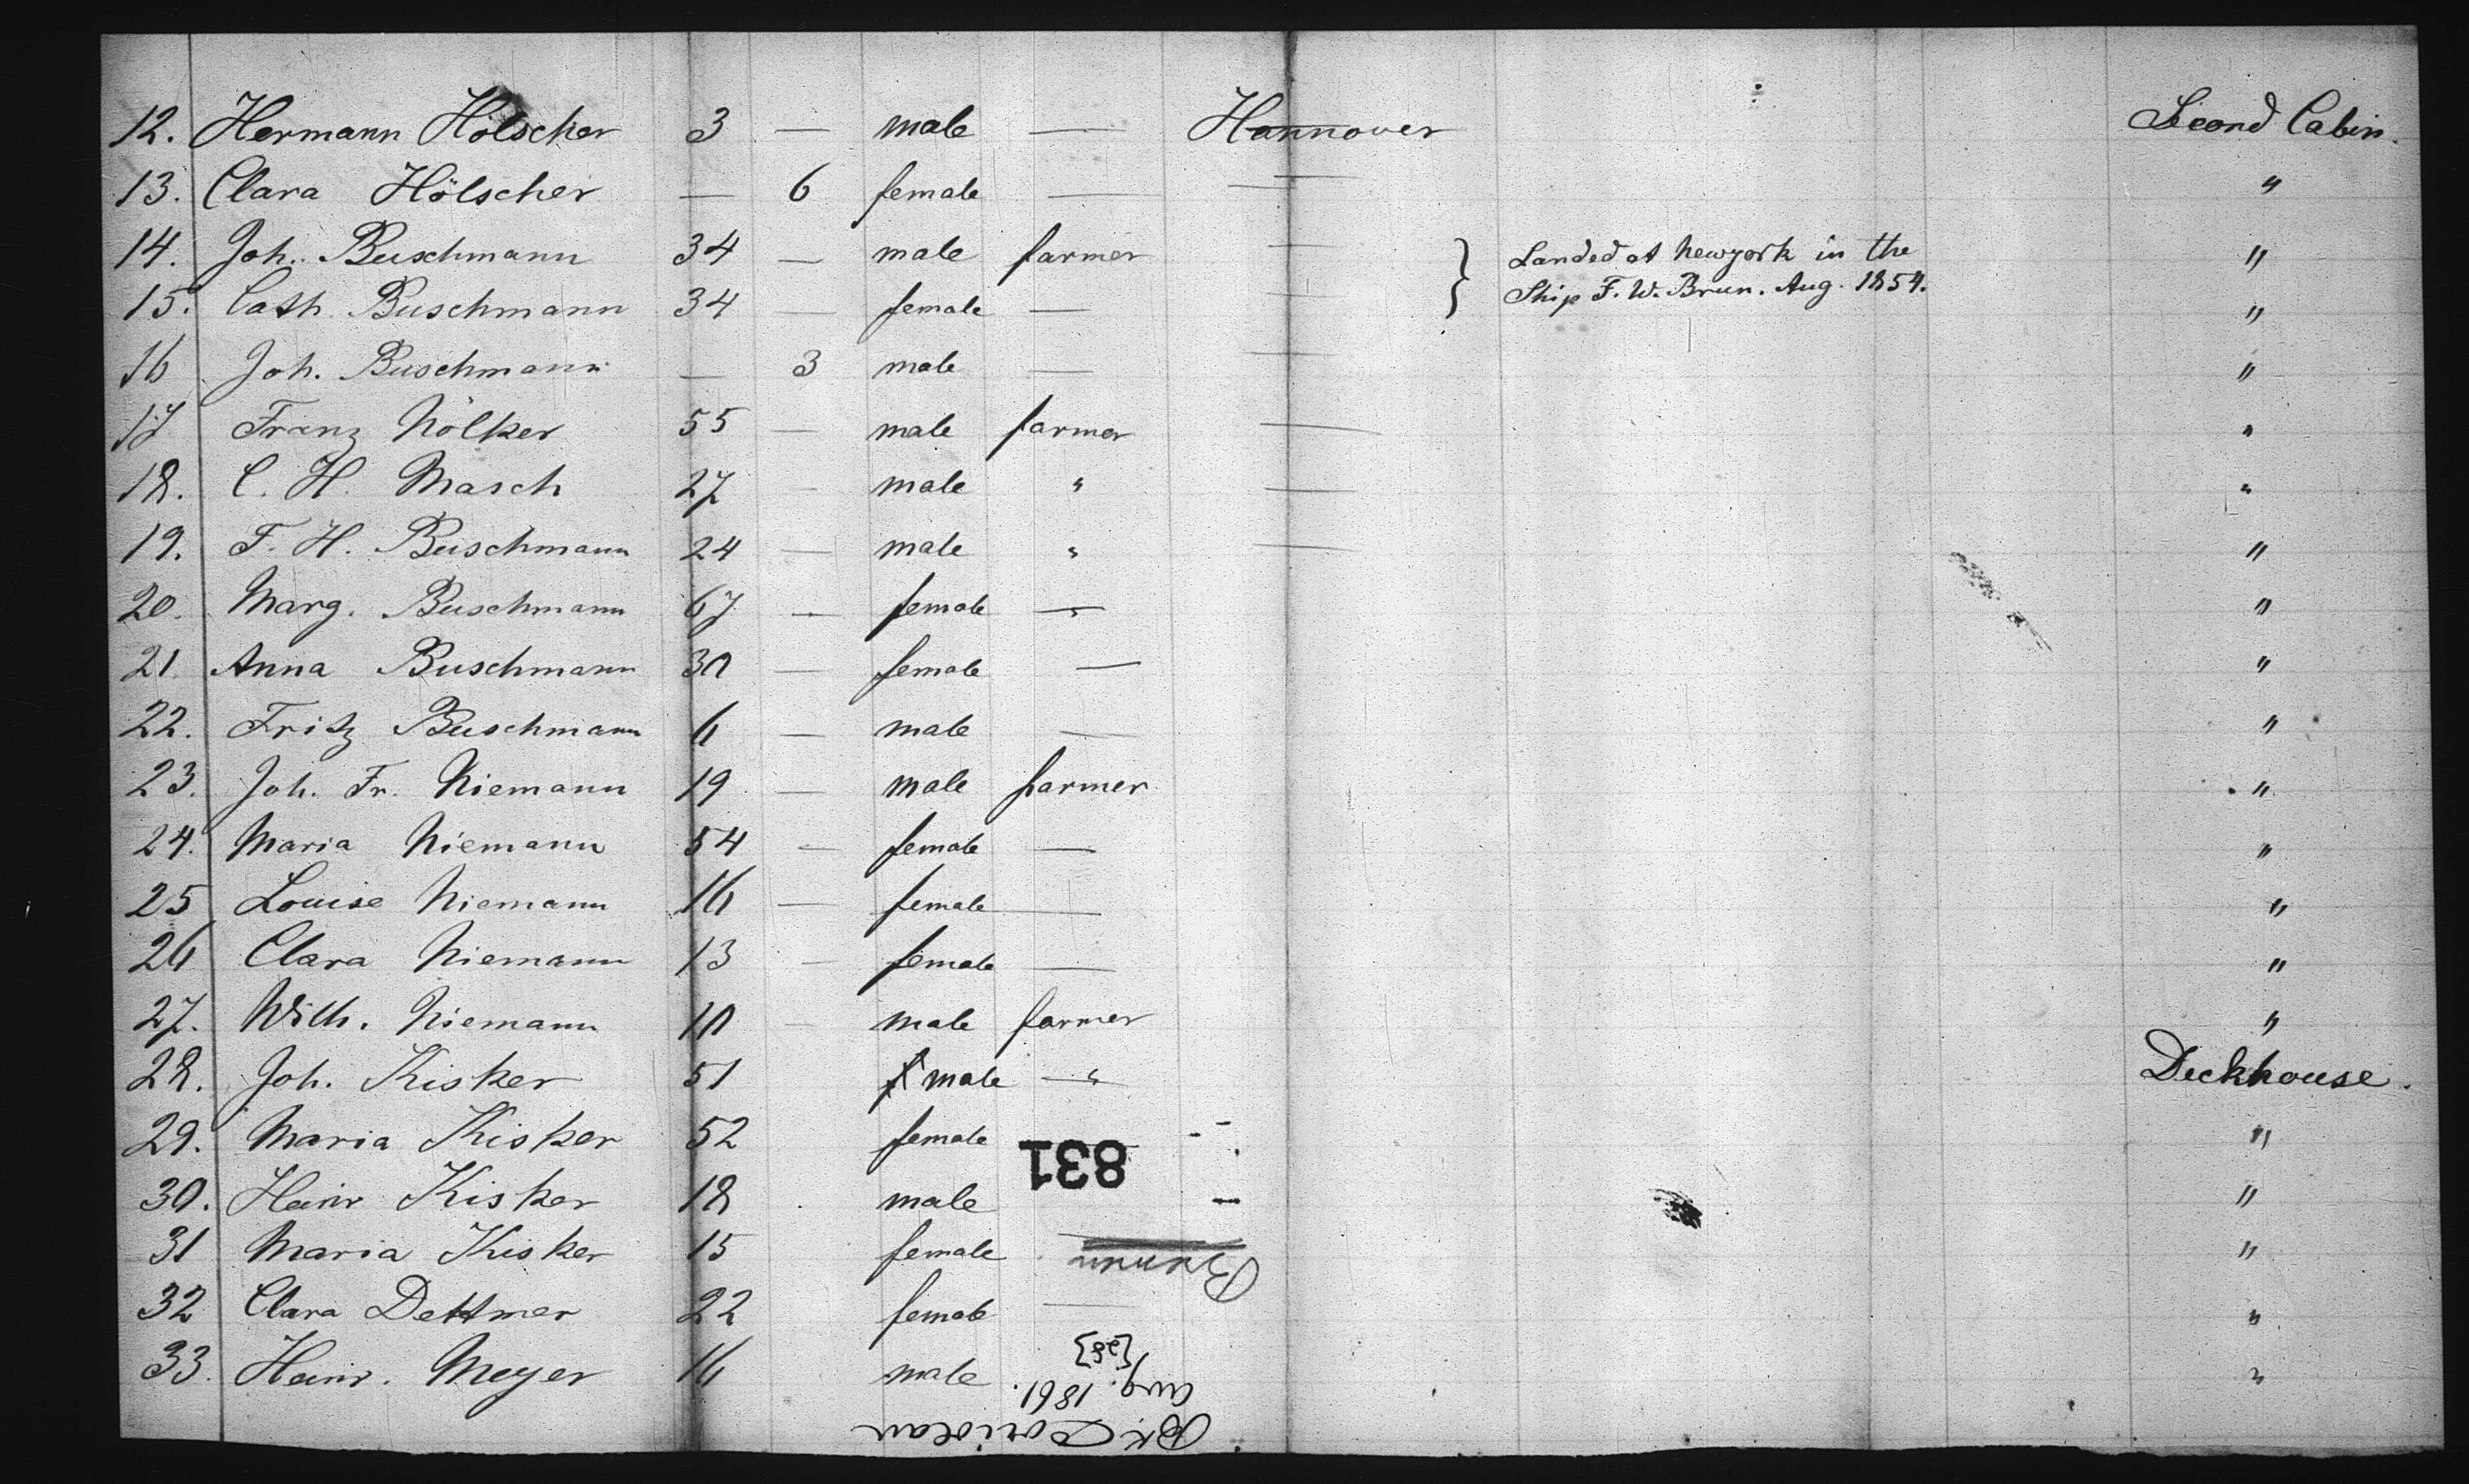 12. Hermann Hölscher 3 — male — Hannover Second Cabin.
13. Clara Hölscher — 6 female — — "
14. Joh. Buschmann 34 — male farmer — } Landed at Newyork in the "
15. Cath Buschmann 34 — female — — Ship F. W. Brun. Aug. 1854. "
16 Joh. Buschmann — 3 male — — "
17 Franz Nölker 55 — male farmer — "
18. C. H. Masch 27 — male " — "
19. F. H. Buschmann 24 — male " — "
20. Marg. Buschmann 67 — female — "
21. Anna Buschmann 30 — female — "
22. Fritz Buschmann 6 — male — "
23. Joh. Fr. Niemann 19 — male farmer "
24. Maria Niemann 54 — female — "
25 Louise Niemann 16 — female — "
26 Clara Niemann 13 — female — "
27. Wilh. Niemann 10 — male farmer "
28. Joh. Kisker 51 male — " Deckhouse.
29. Maria Kisker 52 female "
831
30. Heinr Kisker 18 male "
31 Maria Kisker 15 female "
32 Clara Dettmer 22 female — "
33. Heinr. Meyer 16 male "
Aug. 1861.
Bk. Coriolan